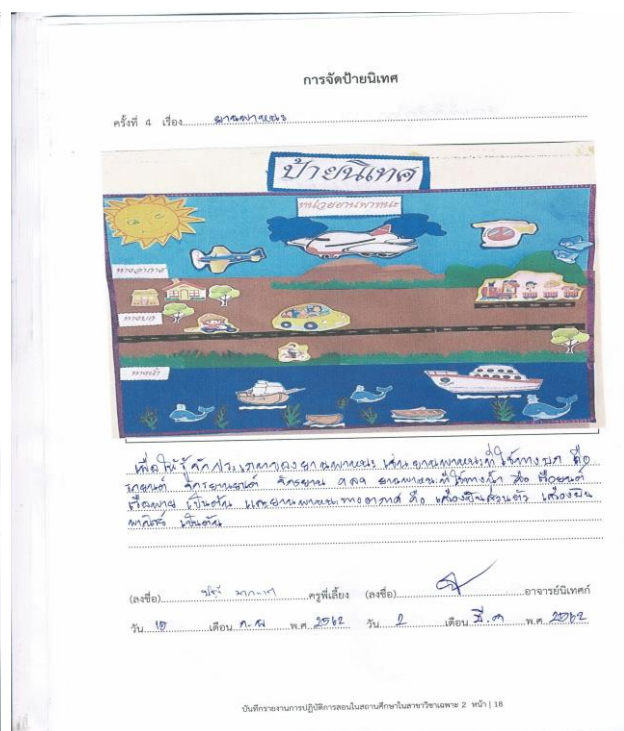 การจัดป้ายนิเทศ
ครั้งที่ 4 เรื่อง ยานพาหนะ
ป้ายนิเทศ
หน่วยยานพาหนะ
ทางอากาศ
ทางบก
ทางน้ำ
เพื่อให้รู้จักประเภทของยานพาหนะ เช่น ยานพาหนะที่ใช้ทางบก คือ
รถยนต์ จักรยานยนต์ จักรยาน ฯลฯ ยานพาหนะที่ใช้ทางน้ำ คือ เรือยนต์
เรือพาย เป็นต้น และยานพาหนะทางอากาศ คือ เครื่องบินส่วนตัว เครื่องบิน
พาณิชย์ เป็นต้น
(ลงชื่อ) ครูพี่เลี้ยง (ลงชื่อ) อาจารย์นิเทศก์
วัน เดือน พ.ศ. 2562 วัน 2 เดือน มี.ค พ.ศ. 2562
บันทึกรายงานการปฏิบัติการสอนในสถานศึกษาในสาขาวิชาเฉพาะ 2 หน้า | 18